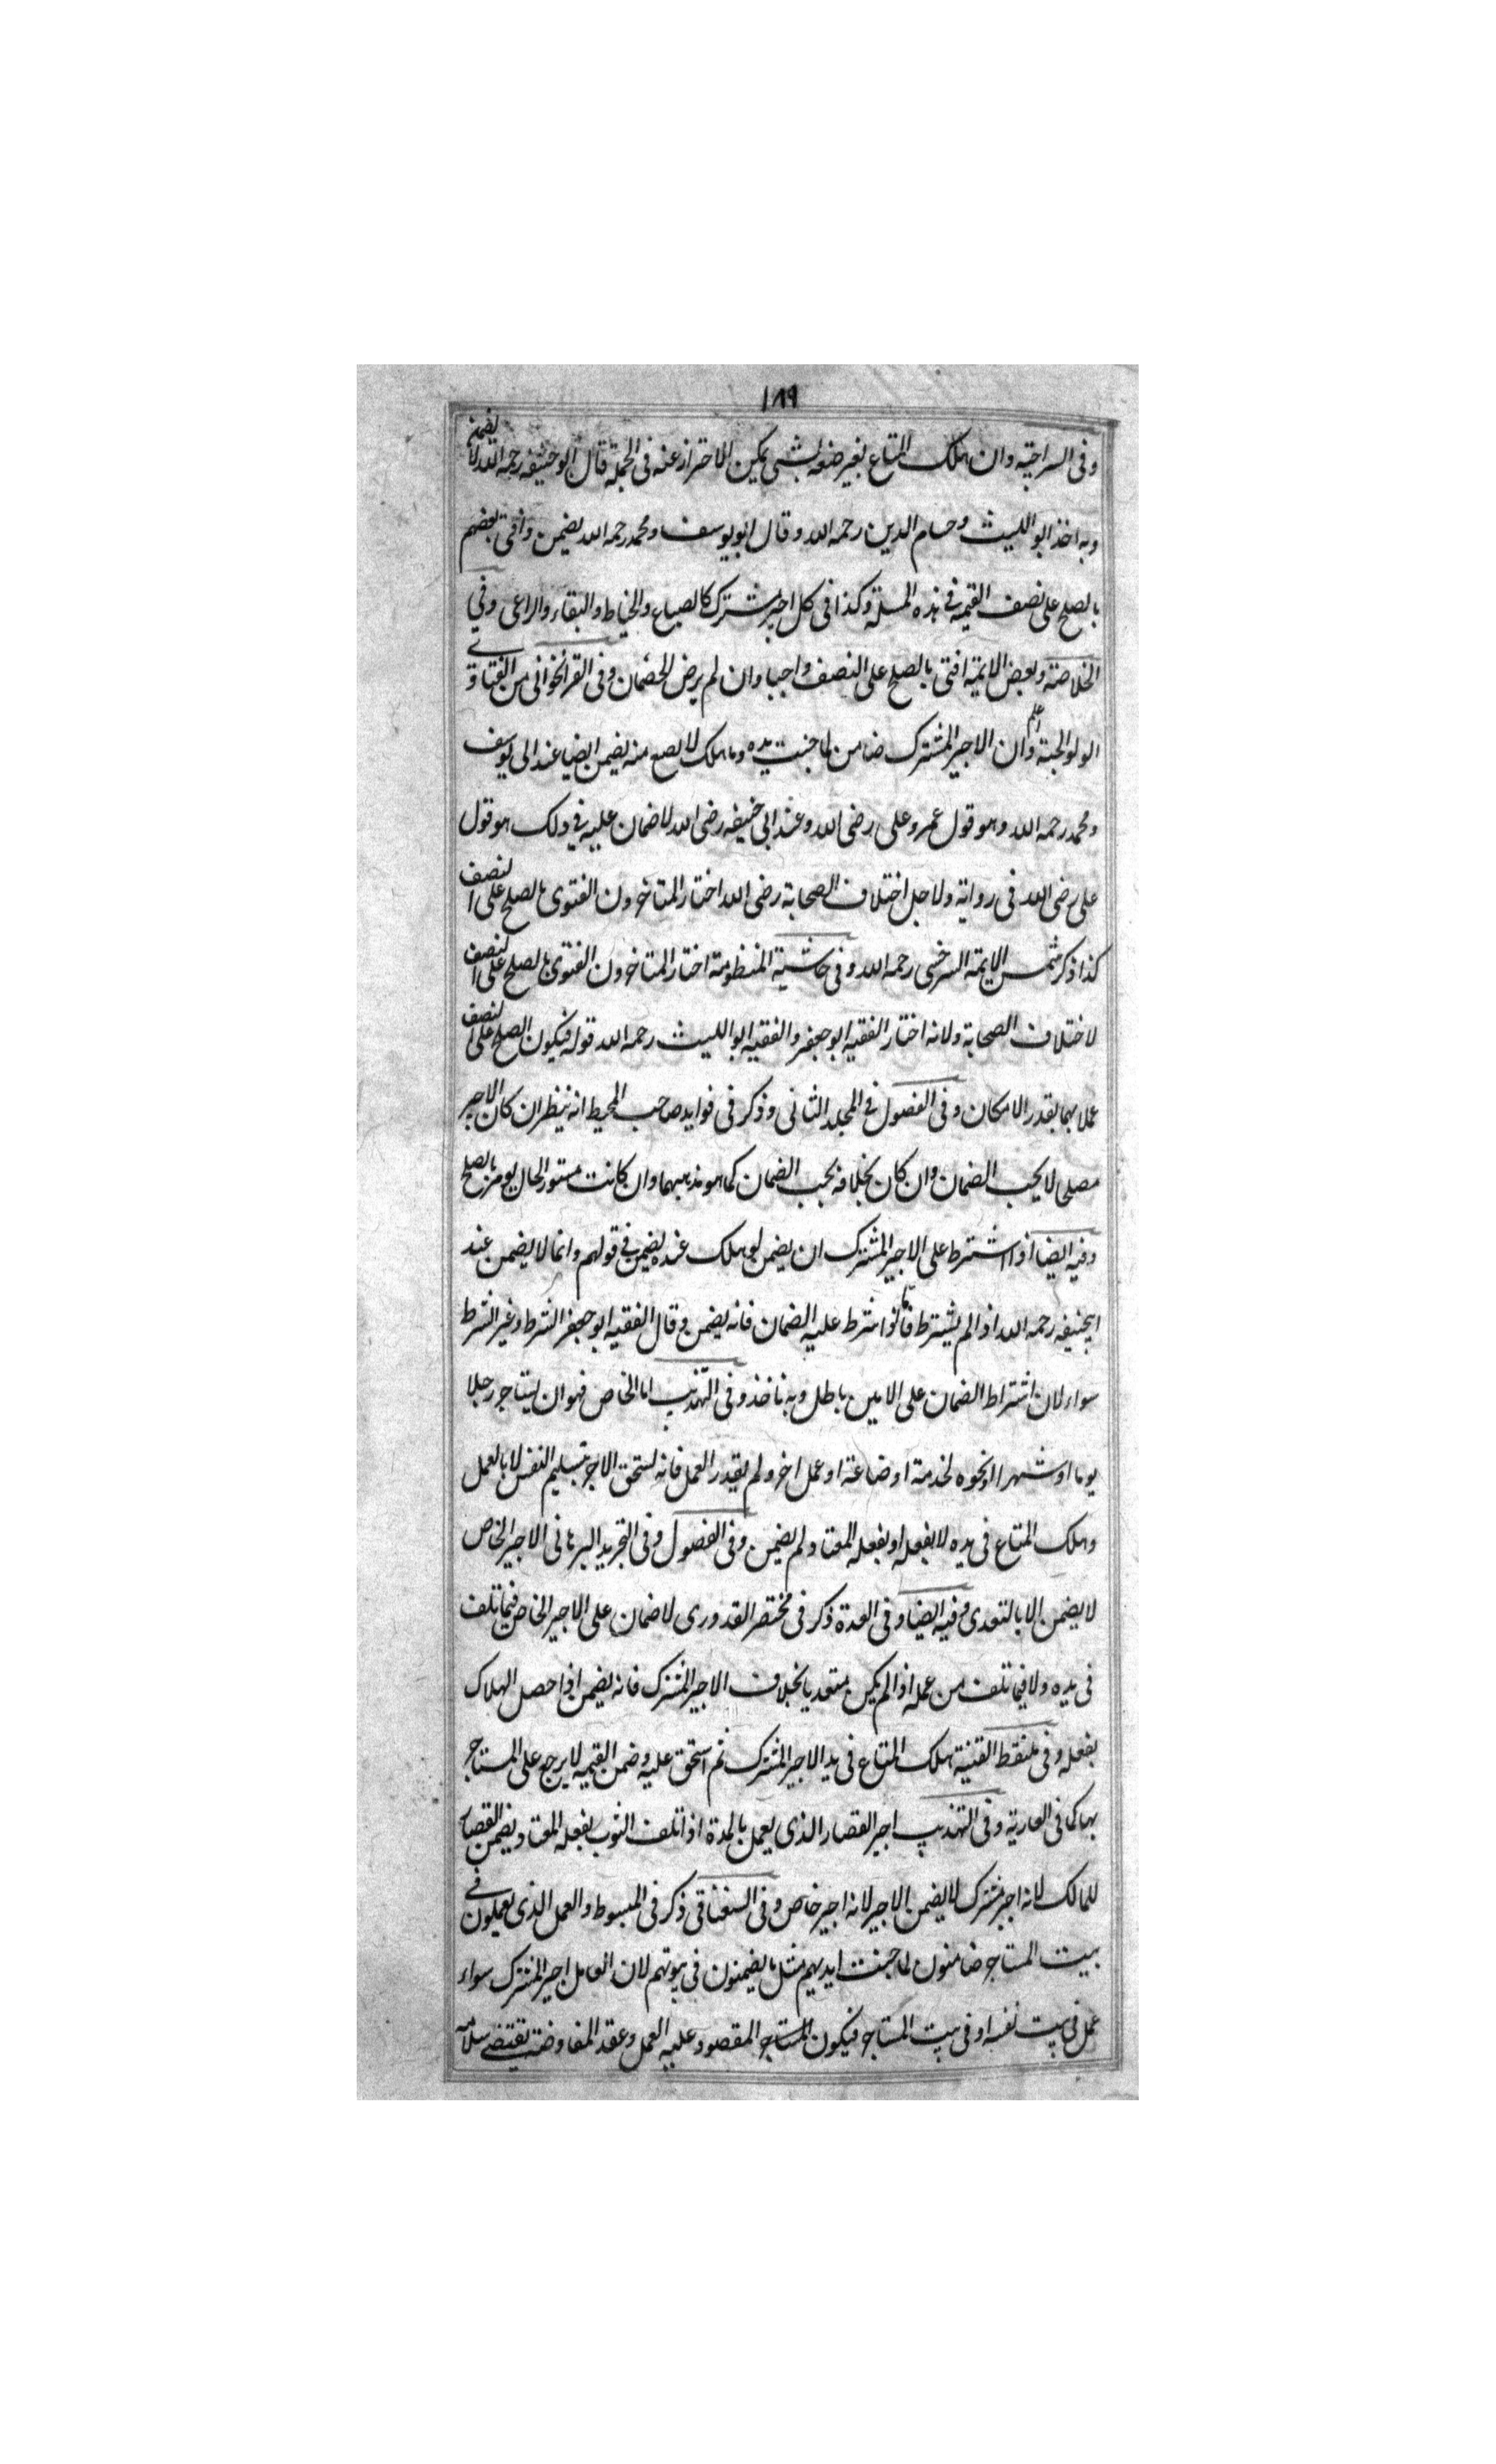 ١٨٩
وفى السراجية وان هلك المتاع بغير صنعه بشئ يمكن الاحتراز عنه فى الجملة قال ابو حنيفه رحمه الله لا يضمن
وبه اخذ ابو الليث وحسام الدين رحمه الله وقال ابو يوسف ومحمد رحمه الله يضمن وافتى بعضهم
بالصلح على نصف القيمة فى هذه المسئلة وكذا فى كل اجير مشترك كالصباغ والخياط والبقاء والراعى وفي
الخلاصة وبعض الايمة افتى بالصلح على النصف واجبا وان لم يرض الخصمان وفى القراخوانى من الفتاوى
الولوالجية اعلم وان الاجير المشترك ضامن لما جنيت يده وما هلك لا بصنع منه يضمن ايضا عند ابى يوسف
ومحمد رحمه الله وهو قول عمر وعلى رضى الله وعند ابى حنيفه رضى الله لا ضمان عليه فى ذلك هو قول
على رضى الله فى رواية ولاجل اختلاف الصحابة رضى الله اختار المتاخرون الفتوى بالصلح على النصف
كذا ذكر شمس الايمة السرخسى رحمه الله وفى حاشية المنظومة اختار المتاخرون الفتوى بالصلح على النصف
لاختلاف الصحابة ولانه اختار الفقيه ابو جعفر والفقيه ابو الليث رحمه الله قوله فيكون الصلح على النصف
عملا بهما بقدر الامكان وفى الفصول فى المجلد الثانى وذكر فى فوايد صاحب المحيط انه ينظر ان كان الاجير
مصلى لا يجب الضمان وان كان بخلافه يجب الضمان كما هو مذهبهما وان كانت مستور الحال يومر بالصلح
وفيه ايضا اذا اشترط على الاجير المشترك ان يضمن لو هلك عنده يضمن فى قولهم وانما لا يضمن عند
ابيحنيفه رحمه الله اذا لم يشترط فاما لو اشرط عليه الضمان فانه يضمن وقال الفقيه ابو جعفر الشرط وغير الشرط
سواء لان اشتراط الضمان على الامين باطل وبه ناخذ وفى التهذيب اما الخاص فهو ان يستاجر رجلا
يوما او شهرا او نحوه لخدمة او صناعة او عمل اخر ولم يقدر العمل فانه يستحق الاجر بتسليم النفس لا بالعمل
وهلك المتاع فى يده لا بفعله او بفعله المعتاد لم يضمن وفى الفصول وفى التجريد البرهانى الاجير الخاص
لا يضمن الا بالتعدى وفيه ايضا وفى العدة ذكر فى مختصر القدورى لا ضمان على الاجير الخاص فيما تلف
فى يده ولا فيما تلف من عمله اذا لم يكن متعديا بخلاف الاجير المشترك فانه يضمن اذا حصل الهلاك
بفعله وفى ملتقط القنية هلك المتاع فى يد الاجير المشترك ثم استحق عليه وضمن القيمة لا يرجع على المستاجر
بها كما فى العارية وفى التهذيب اجير القصار الذى يعمل بالمدة اذا تلف الثوب بفعله المعتاد يضمن القصار
للمالك لانه اجير مشترك لا يضمن الاجير لانه اجير خاص وفى السغناقى ذكر فى المبسوط والعمل الذى يعملون فى
بيت المستاجر ضامنون لما جنت ايديهم مثل ما يضمنون فى بيوتهم لان العامل اجير المشترك سواء
عمل فى بيت نفسه او فى بيت المستاجر فيكون المستاجر المقصود عليه العمل وعقد المفاوضة يقتضى سلامة